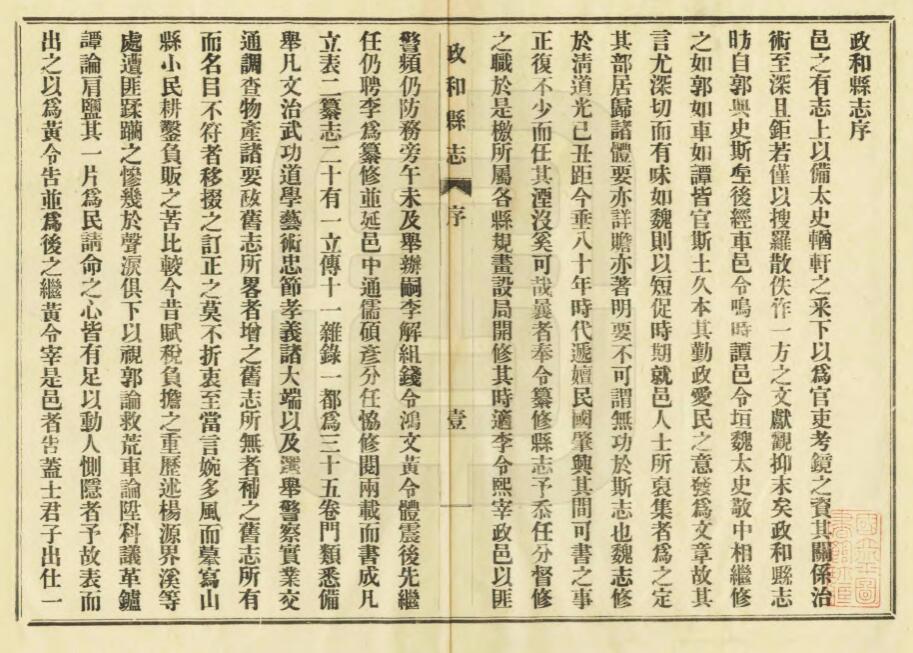 政和縣志序
邑之有志上以備太史輶軒之釆下以爲官吏考鏡之資其關係治
術至深且鉅若僅以搜羅散佚作一方之文獻觀抑末矣政和縣志
昉自郭與史斯垕後經車邑令鳴時譚邑令垣魏太史敬中相繼修
之如郭如車如譚皆官斯土久本其勤政愛民之意發爲文章故其
言尤深切而有味如魏則以短促時期就邑人士所裒集者爲之定
其部居歸諸體要亦詳贍亦著明要不可謂無功於斯志也魏志修
於淸道光己丑距今垂八十年時代遞嬗民國肇興其間可書之事
正復不少而任其湮沒奚可哉曩者奉令纂修縣志予忝任分督修
之職於是檄所屬各縣規畫設局開修其時適李令熙宰政邑以匪
政和縣志
序
壹
警頻仍防務旁午未及舉辦嗣李解組錢令鴻文黃令體震後先繼
任仍聘李爲纂修並延邑中通儒碩彥分任恊修閱兩載而書成凡
立表二纂志二十有一立傳十一雜錄一都爲三十五卷門類悉備
舉凡文治武功道學藝術忠節孝義諸大端以及瀷舉警察實業交
通調查物產諸要政舊志所畧者增之舊志所無者補之舊志所有
而名目不符者移掇之訂正之莫不折衷至當言婉多風而墓寫山
縣小民耕鑿負販之苦比較今昔賦稅負擔之重歷述楊源界溪等
處遭匪蹂躪之慘幾於聲淚俱下以視郭論救荒車論陞科議革鑪
譚論肩鹽其一片爲民請命之心皆有足以動人惻隱者予故表而
出之以爲黃令告並爲後之繼黃令宰是邑者吿蓋士君子出仕一